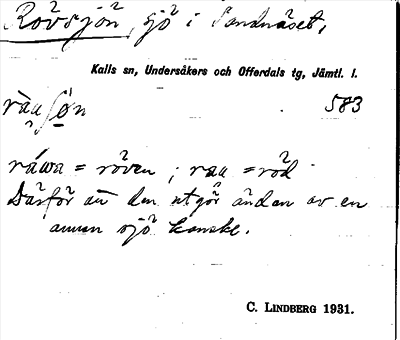 Rövsjön, sjö i Sandnäset,
Kalls sn, Undersåkers och Offerdals tg, Jämtl. l.
583
ráwa = röven ; rau = röd
Därför att den utgör ändan av en
annan sjö kanske.
C. LINDBERG 1931.